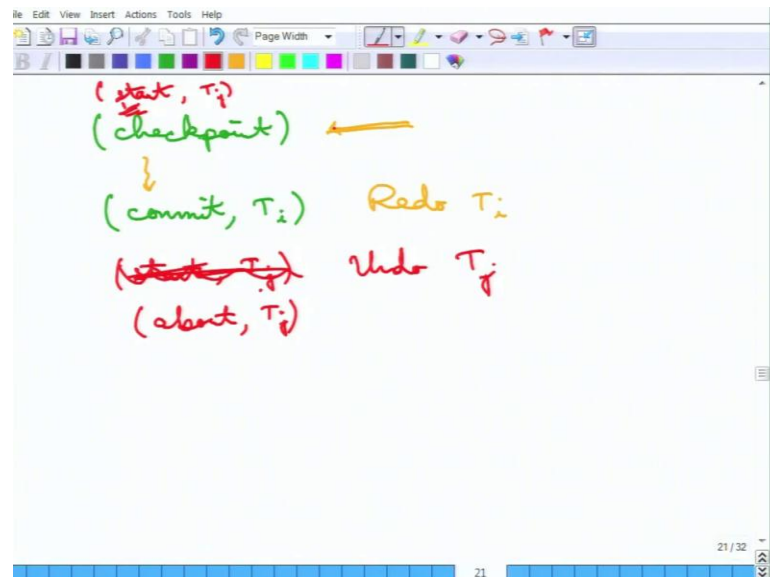 ile Edit View Insert Actions Tools Help
Page Width
B I
(start, Tj)
(checkpoint)
(commit, Ti) Redo Ti
(start, Tj) Undo Tj
(abort, Tj)
21 / 32
21